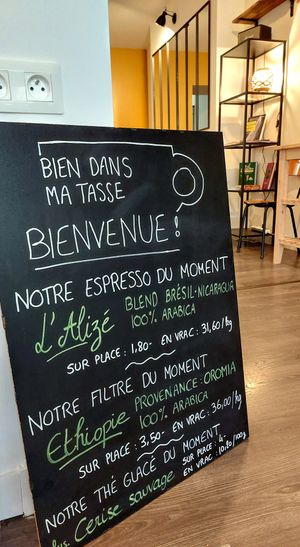 BIEN DANS
MA TASSE
BIENVENUE !
NOTRE ESPRESSO DU MOMENT
L'Alizé BLEND BRÉSIL-NICARAGUA
100% ARABICA
SUR PLACE : 1,80- EN VRAC : 31,60/kg
NOTRE FILTRE DU MOMENT
Ethiopie PROVENANCE : OROMIA
100% ARABICA
SUR PLACE : 3,50- EN VRAC : 36,00/kg
NOTRE THÉ GLACÉ DU MOMENT
Cerise sauvage SUR PLACE : 4-
EN VRAC : 10,80/100g